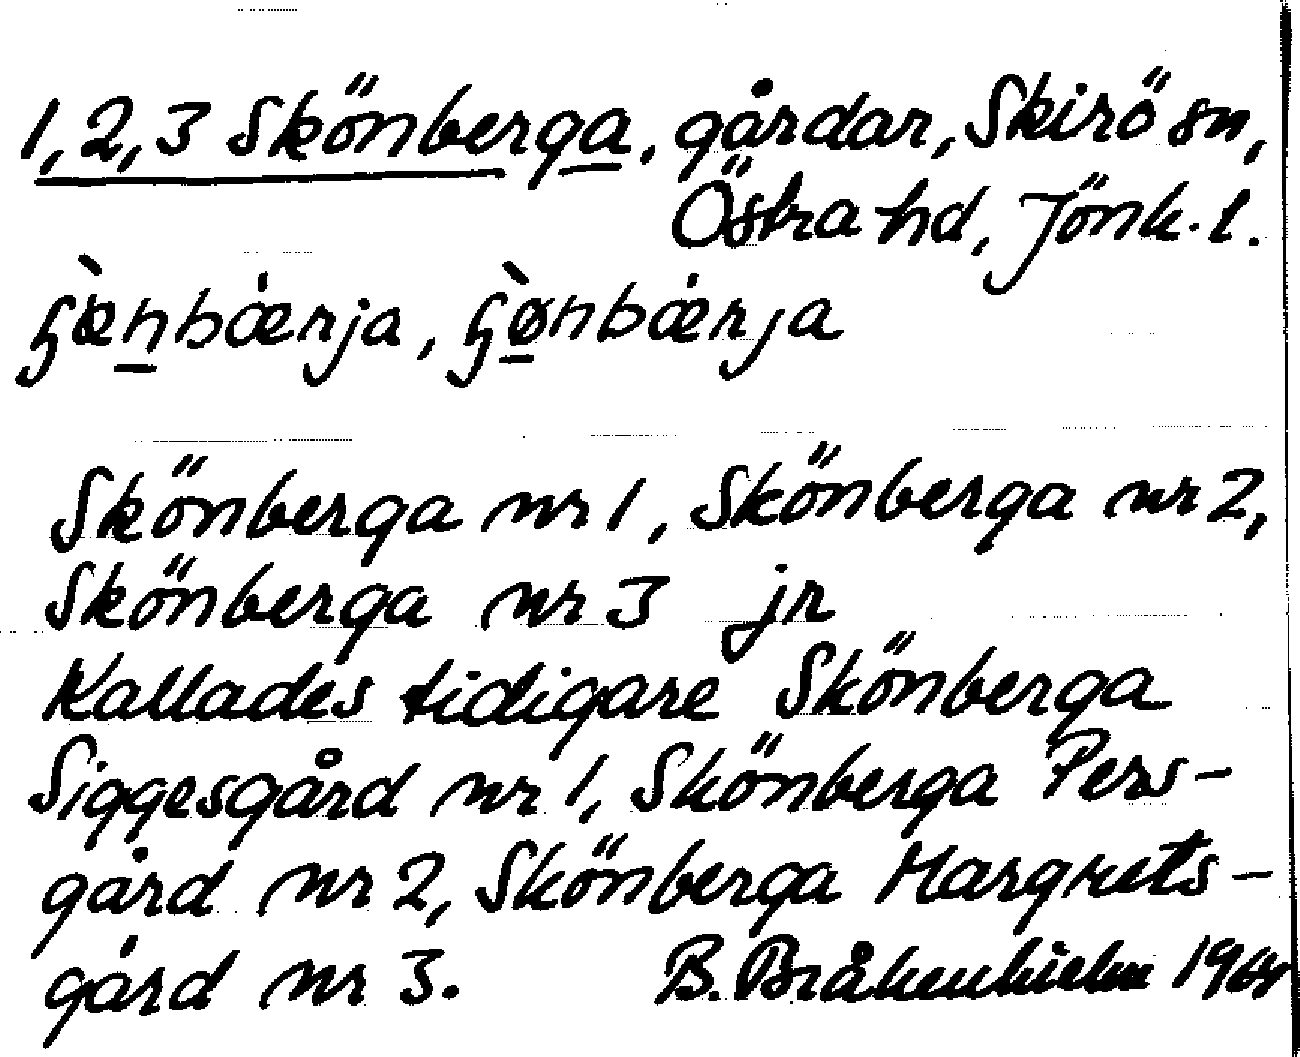 1,2,3 Skönberga, gårdar, Skirö sn,
Östra hd, Jönk. l.
ɧæ̀nbǽrja, ɧø̀nbǽrja
Skönberga nr 1, Skönberga nr 2,
Skönberga nr 3 jr
Kallades tidigare Skönberga
Siggesgård nr 1, Skönberga Pers-
gård nr 2, Skönberga Margrets-
gård nr 3. B. Bråkenhielm 1964